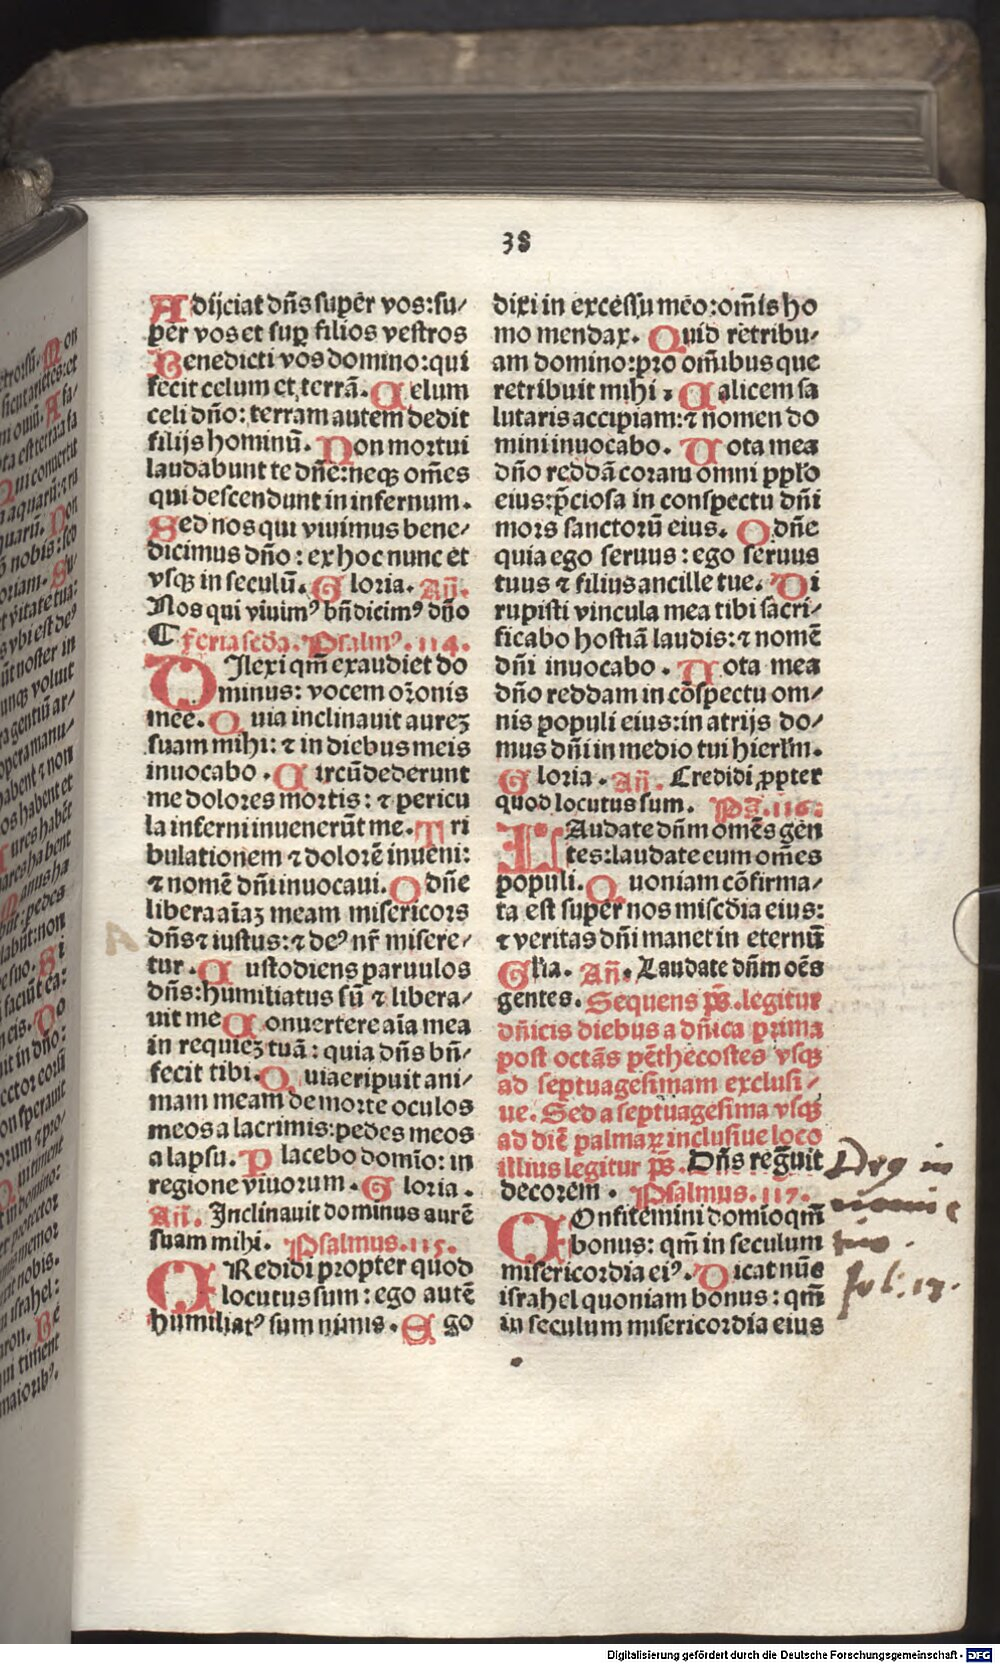 38
Adijciat dn̄s super vos: su/
per vos et suꝑ filios vestros
Benedicti vos domino: qui
fecit celum et terrā. Celum
celi dn̄o: terram autem dedit
filijs hominū. Non mortui
laudabunt te dn̄e: neqꝫ om̄es
qui descendunt in infernum.
Sed nos qui viuimus bene/
dicimus dn̄o: ex hoc nunc et
vsqꝫ in seculū. Gloria. An̄.
Nos qui viuimꝰ bn̄dicimꝰ dn̄o
¶ feria scd̄a. Psalmꝰ. 114.
DIlexi qm̄ exaudiet do
minus: vocem or̄onis
mee. Quia inclinauit aureꝫ
suam mihi: ⁊ in diebus meis
inuocabo. Circūdederunt
me dolores mortis: ⁊ pericu
la inferni inuenerūt me. Tri
bulationem ⁊ dolorē inueni:
⁊ nomē dn̄i inuocaui. O dn̄e
libera aīaꝫ meam misericors
dn̄s ⁊ iustus: ⁊ deꝰ nr̄ misere/
tur. Custodiens paruulos
dn̄s: humiliatus sū ⁊ libera/
uit me Conuertere aīa mea
in requieꝫ tuā: quia dn̄s bn̄/
fecit tibi. Quia eripuit ani/
mam meam de morte oculos
meos a lacrimis: pedes meos
a lapsu. Placebo domīo: in
regione viuorum. Gloria.
An̄. Inclinauit dominus aurē
suam mihi. Psalmus. 115.
CRedidi propter quod
locutus sum: ego autē
humiliatꝰ sum nimis. Ego
dixi in excessu meo: om̄is ho
mo mendax. Quid retribu/
am domino: pro om̄ibus que
retribuit mihi: Calicem sa
lutaris accipiam: ⁊ nomen do
mini inuocabo. Uota mea
dn̄o reddā coram omni ppl̄o
eius: p̄ciosa in conspectu dn̄i
mors sanctorū eius. O dn̄e
quia ego seruus: ego seruus
tuus ⁊ filius ancille tue. Di
rupisti vincula mea tibi sacri/
ficabo hostiā laudis: ⁊ nomē
dn̄i inuocabo. Uota mea
dn̄o reddam in cōspectu om/
nis populi eius: in atrijs do/
mus dn̄i in medio tui hierl̄m.
Gloria. An̄. Credidi ꝓpter
quod locutus sum. Ps̄. 116.
LAudate dn̄m om̄es gen
tes: laudate eum om̄es
populi. Quoniam cōfirma/
ta est super nos misc̄dia eius:
⁊ veritas dn̄i manet in eternū
Gl̄ia. An̄. Laudate dn̄m oēs
gentes. Sequens ps̄. legitur
dn̄icis diebus a dn̄ica prima
post octās pēthecostes vsqꝫ
ad septuagesimam exclusi/
ue. Sed a septuagesima vsqꝫ
ad diē palmaꝝ inclusiue loco
illius legitur ps̄. Dn̄s regn̄uit
decorem. Psalmus. 117.
COnfitemini domīo qm̄
bonus: qm̄ in seculum
misericordia eiꝰ. Dicat nūc
israhel quoniam bonus: qm̄
in seculum misericordia eius
in
fol: 17.
Digitalisierung gefördert durch die Deutsche Forschungsgemeinschaft - DFG